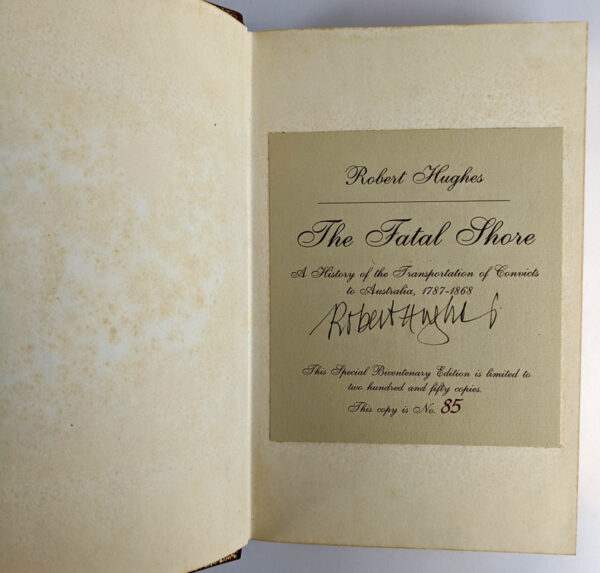 Robert Hughes
The Fatal Shore
A History of the Transportation of Convicts
to Australia, 1787-1868
Robert Hughes
This Special Bicentenary Edition is limited to
two hundred and fifty copies.
This copy is No. 85